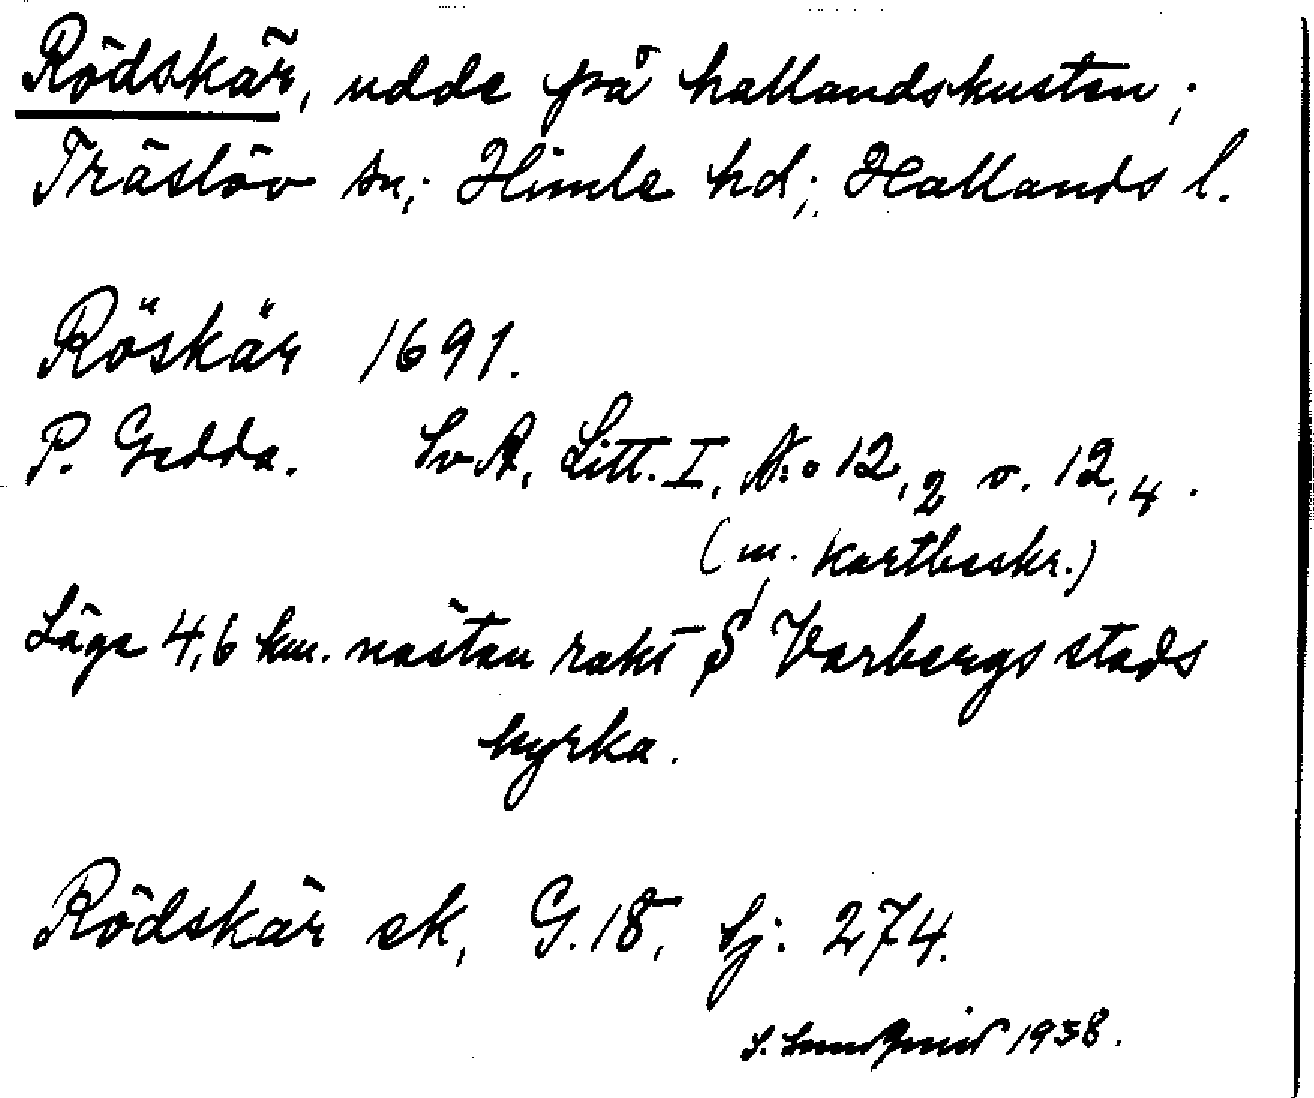 Rödskär, udde på hallandskusten;
Träslöv sn; Himle hd; Hallands l.
Röskär 1691.
P. Gedda. SvA, Litt. I, N:o 12,2 o. 12,4.
(m. kartbeskr.)
Läge 4,6 km. nästan rakt S Varbergs stads
kyrka.
Rödskär ek, G.18, Sj: 274.
S. 1938.